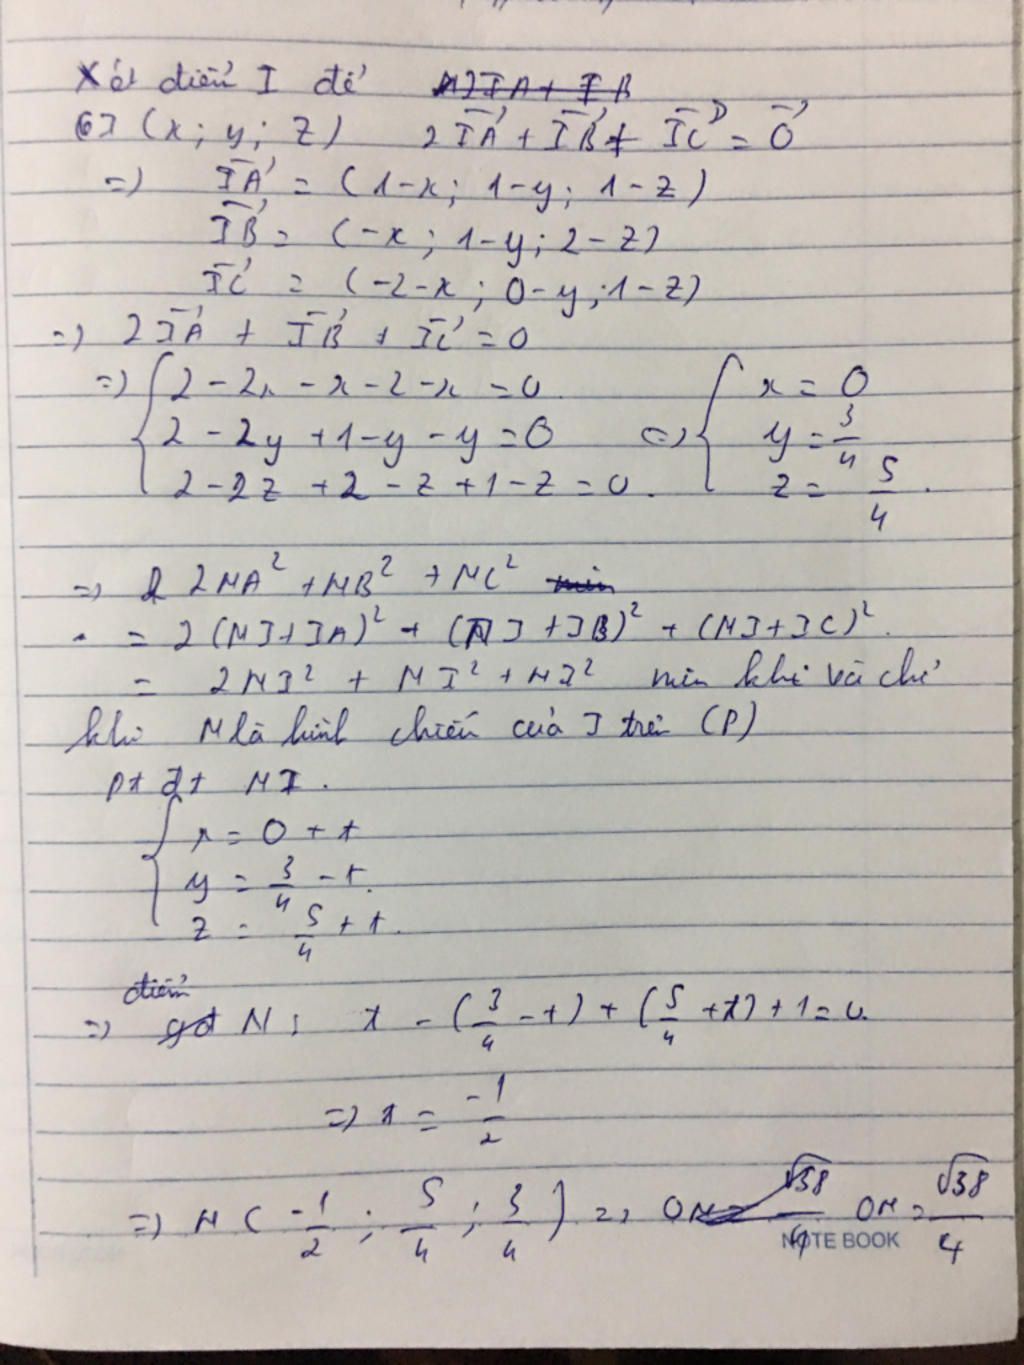 Xét điểm I để 2IA + IB
GI (x; y; z) 2IA + IB + IC = 0
=) IA = (1-x; 1-y; 1-z)
IB = (-x; 1-y; 2-z)
IC = (-2-x; 0-y; 1-z)
=) 2IA + IB + IC = 0
=) { 2 - 2x - x - 2 - x = 0. { x = 0
2 - 2y + 1 - y - y = 0 <=> y = 3/4
2 - 2z + 2 - z + 1 - z = 0. z = 5/4.
=> 2MA² + MB² + MC² min
= 2(MI+IA)² + (MI+IB)² + (MI+IC)².
= 2MI² + MI² + MI² min khi và chỉ
khi M là hình chiếu của I trên (P)
pt đt MI.
{ x = 0 + t
y = 3/4 - t.
z = 5/4 + t.
điểm
=> M: t - (3/4 - t) + (5/4 + t) + 1 = 0.
=) t = -1/2
=) M (-1/2; 5/4; 3/4) => OM = √38/4 OM = √38/4
NOTE BOOK